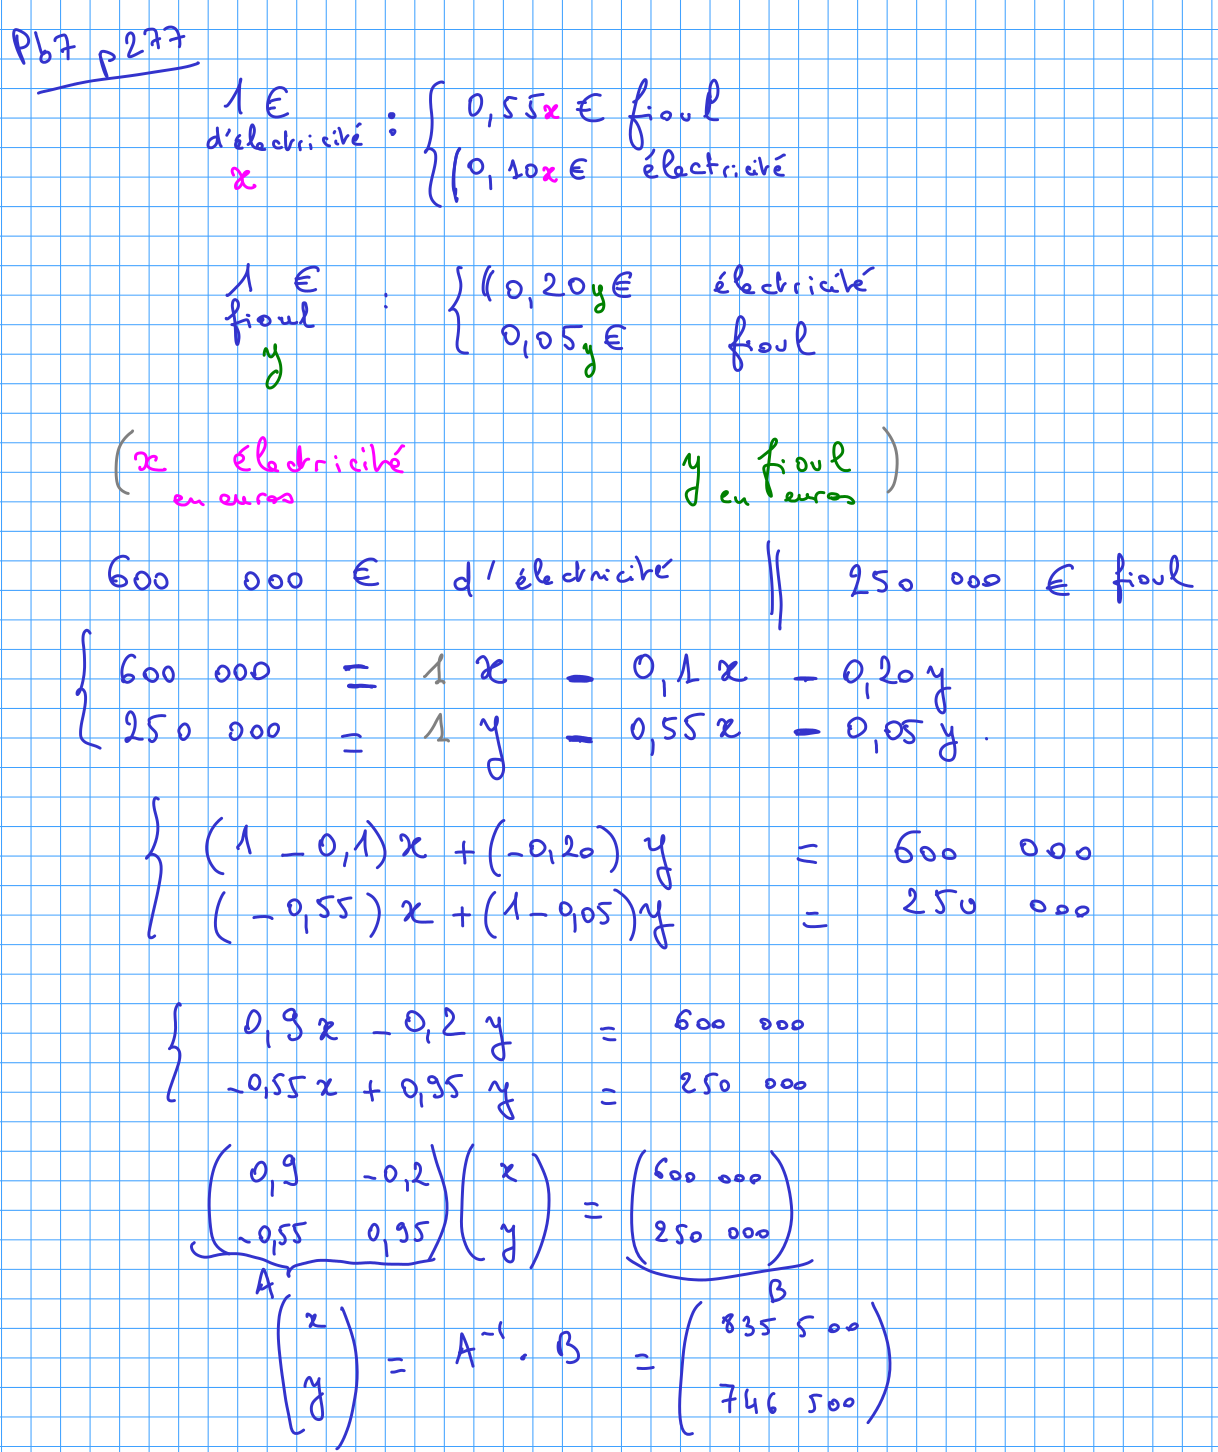 Pb7 p277
1 € d'électricité x : { 0,55x € fioul
0,10x € électricité
1 € fioul y : { 0,20y € électricité
0,05y € fioul
( x électricité en euros y fioul en euros )
600 000 € d'électricité || 250 000 € fioul
{ 600 000 = 1 x - 0,1 x - 0,20 y
250 000 = 1 y - 0,55 x - 0,05 y .
{ (1 - 0,1) x + (-0,20) y = 600 000
(-0,55) x + (1 - 0,05) y = 250 000
{ 0,9 x - 0,2 y = 600 000
-0,55 x + 0,95 y = 250 000
( 0,9 -0,2 ) ( x ) = ( 600 000 )
( -0,55 0,95 ) ( y ) ( 250 000 )
A B
( x ) = A⁻¹ . B = ( 835 500 )
( y ) ( 746 500 )